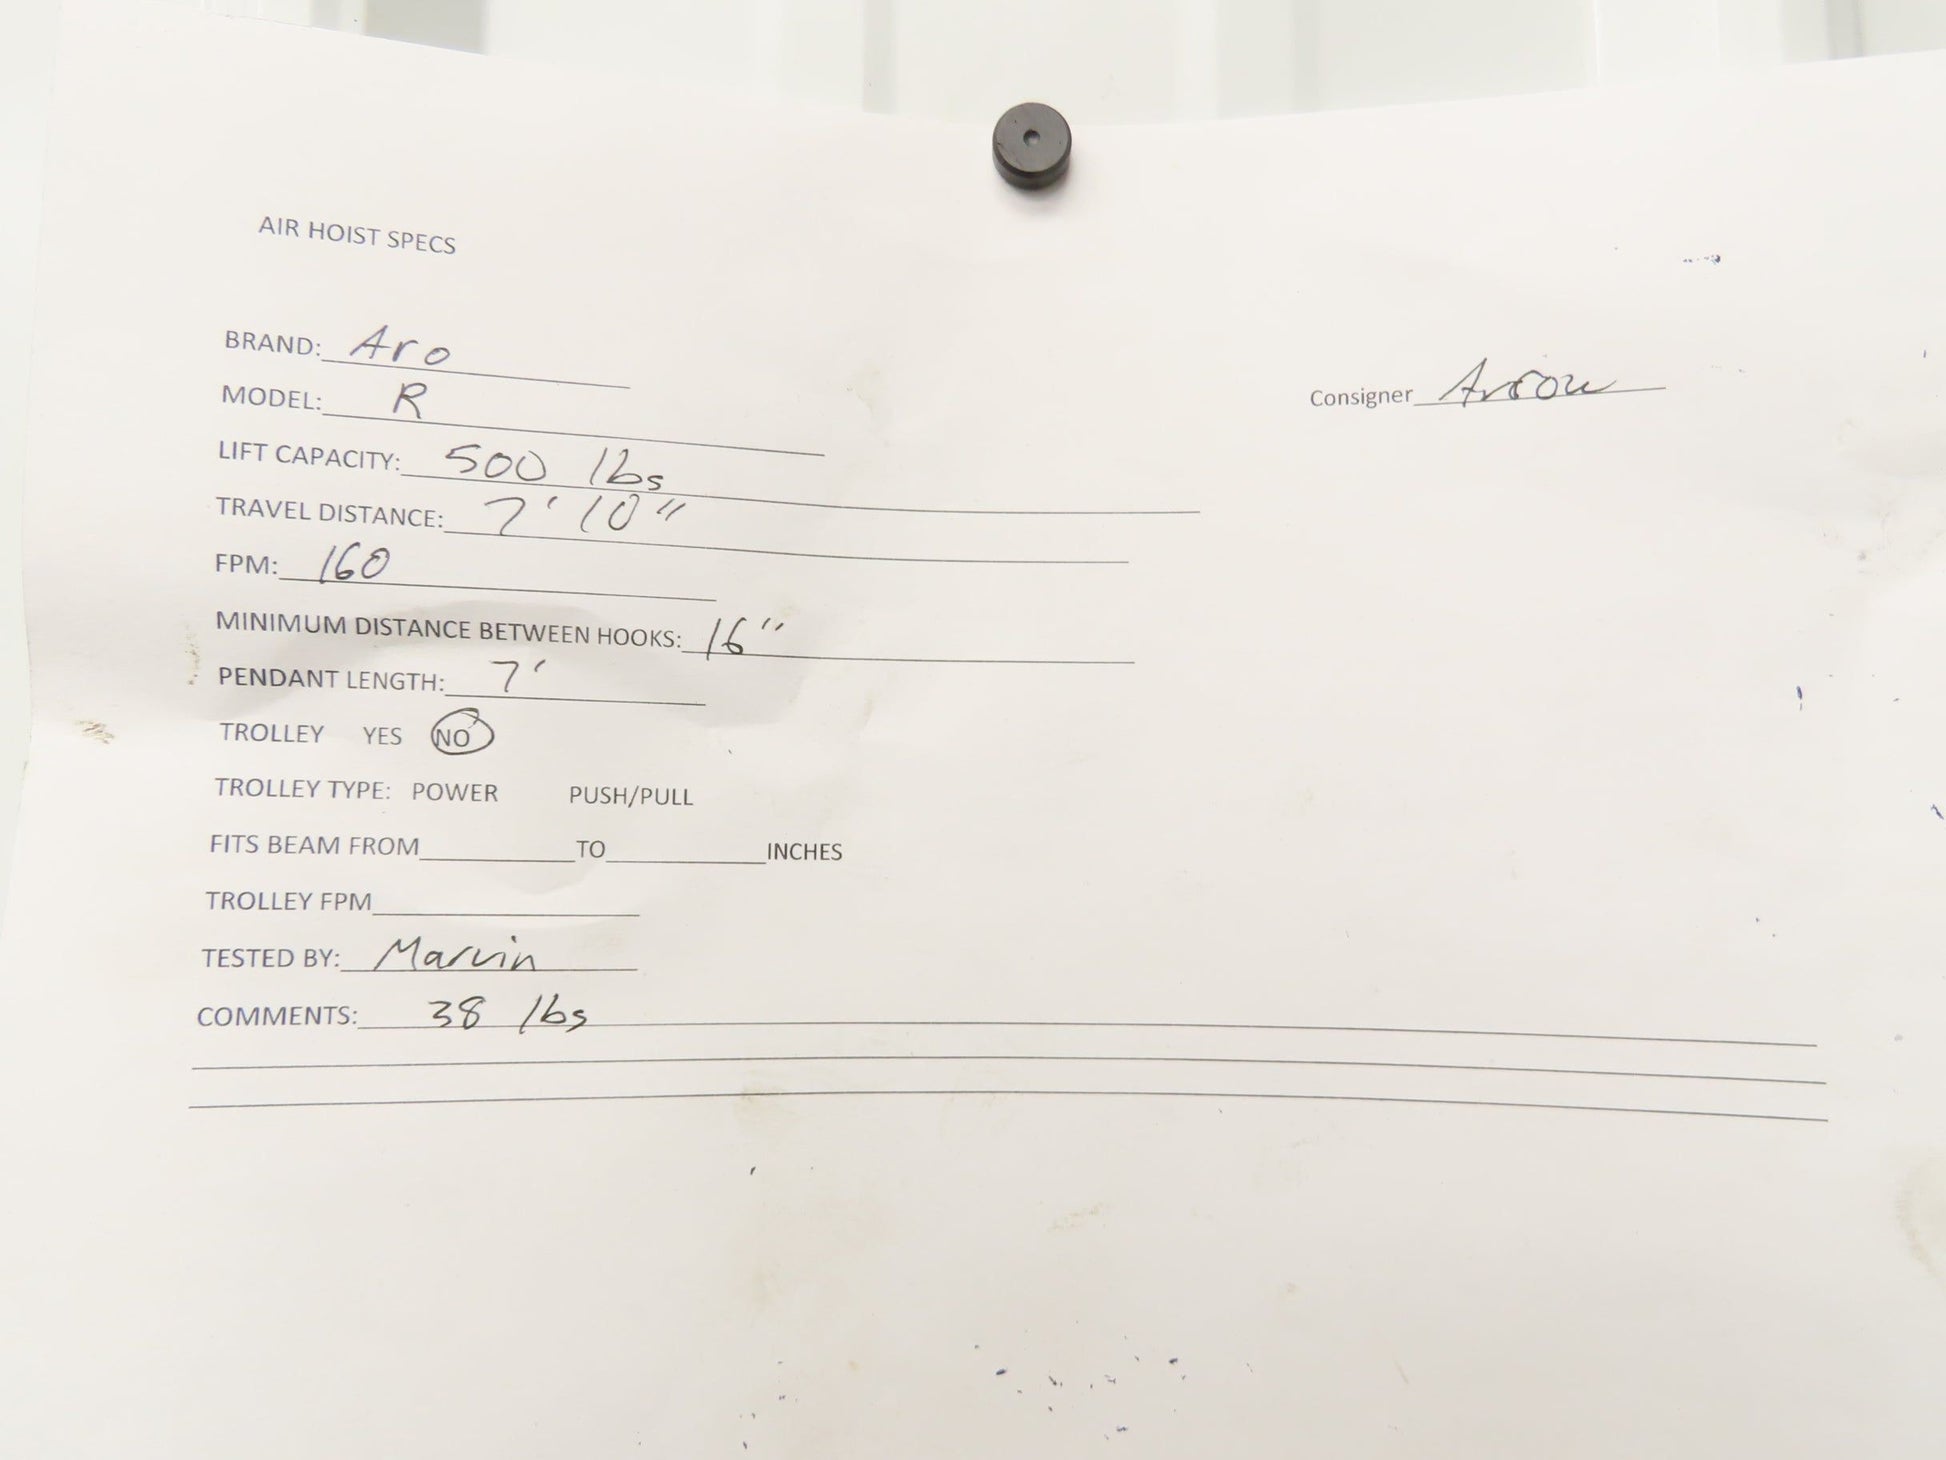 AIR HOIST SPECS
BRAND: Aro
Consigner Arrow
MODEL: R
LIFT CAPACITY: 500 lbs
TRAVEL DISTANCE: 7' 10"
FPM: 160
MINIMUM DISTANCE BETWEEN HOOKS: 16"
PENDANT LENGTH: 7'
TROLLEY YES NO
TROLLEY TYPE: POWER PUSH/PULL
FITS BEAM FROM TO INCHES
TROLLEY FPM
TESTED BY: Marvin
COMMENTS: 38 lbs